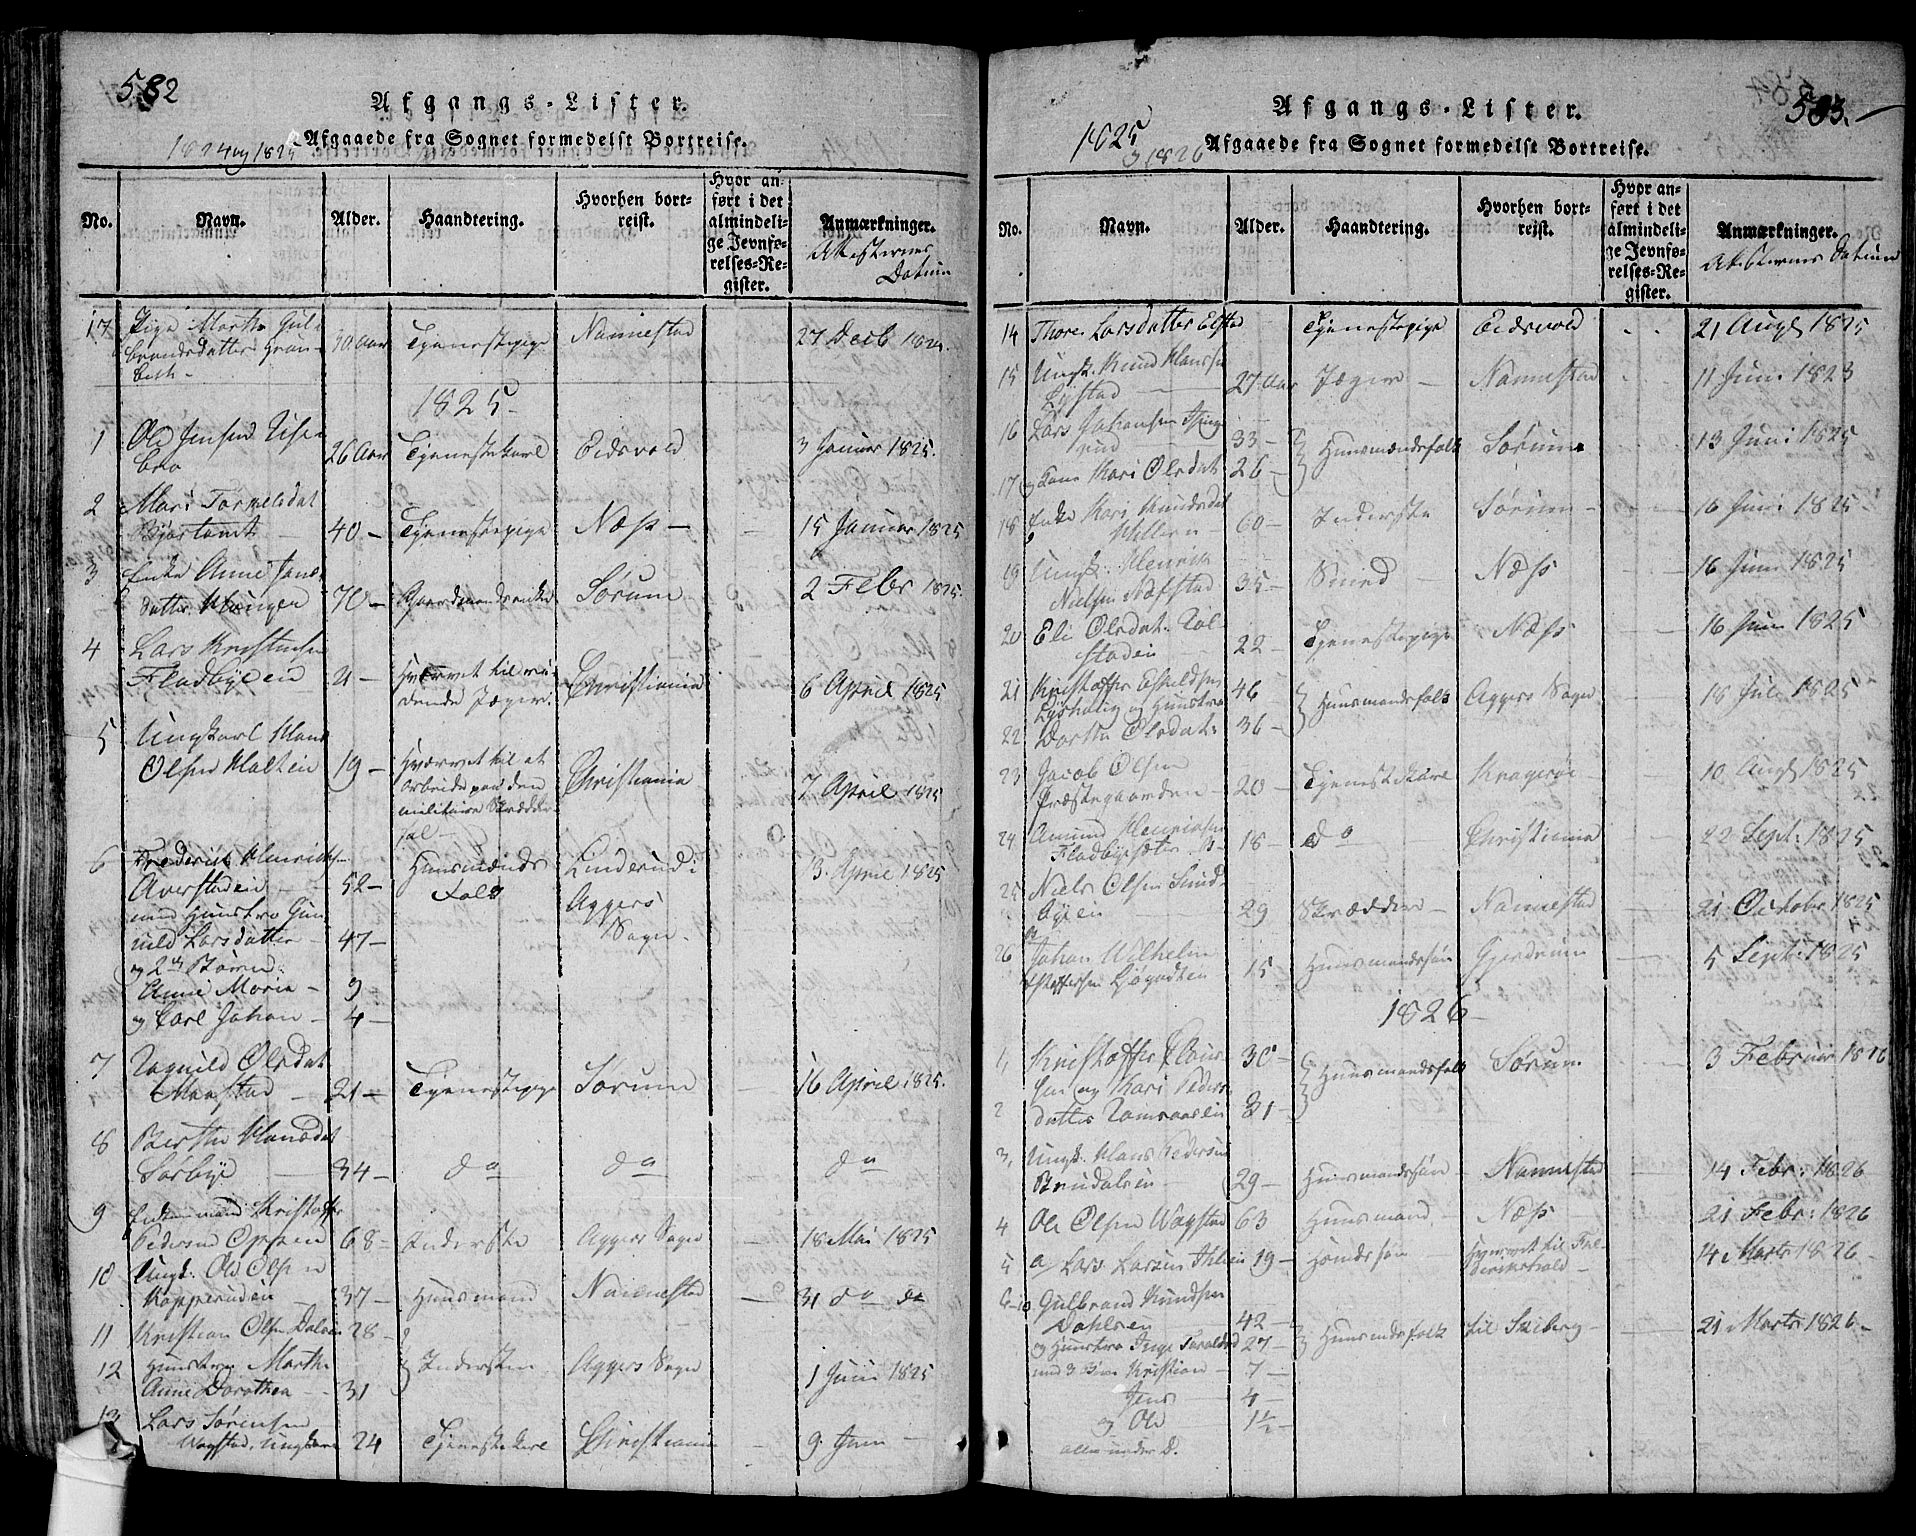 582
Afgangs-Lister.
1824 og 1825 Afgaaede fra Sognet formedelst Bortreise.
No. Navn. Alder. Haandtering. Hvorhen bortreist. Hvor anført i det almindelige Jevnførelses-Register. Anmærkninger. Attesternes Datum
17 Pige Marthe Gulbrandsdatter 30 Aar Tjenestepige Nannestad 27 Decb 1824.
1825
1 Ole Jensen 26 Aar Tjenestekarl Eidsvold 3 Januar 1825.
2 Mari Torkelsdat 40 – Tjenestepige Næss – 15 Januar 1825
3 Enke Anne Jansdatter Hænger 70 – Gaardmandsenke Sørum 2 Febr 1825.
4 Lars Kristensen
Fladbyeien 21 – Hvervet til ridende Jæger Christiania 6 April 1825
5 Ungkarl Hans
Olsen Holteien 19 – Hvervet til at
arbeide paa den
militaire Skræddersal – Christiania 7 April 1825
6 Frederik Henrichs.
Averstadeien 52 – Huusmands Folk Linderud i
Aggers
Sogn. 13 April 1825
med Huustro Gunnild Larsdatter – 47 –
og 2de Børn:
Anne Maria – 9
og Carl Johan – 4 –
7 Ragnild Olsdat
Maastad 21 – Tjenestepige Sørum 16 April 1825.
8 Berthe Hansdat
Sørbye 34 – do do do
9 Enkemand Kristoffer
Pedersen Oppen 68 – Inderste Aggers Sogn 18 Mai 1825
10 Ungk. Ole Olsen
Kopperudeien 37 – Huusmand Nannestad 31 do do
11 Kristian Olsen Dalen 28 –
12 Huustroe Marthe
Anne Dorothea 31 Inderster Aggers Sogn 1 Juni 1825
13 Lars Sørensen
Wagstad, Ungkarl 24 Tjenestekarl Christiania 9 Juni
583.
Afgangs-Lister.
1825 og 1826 Afgaaede fra Sognet formedelst Bortreise.
No. Navn. Alder. Haandtering. Hvorhen bortreist. Hvor anført i det almindelige Jevnførelses-Register. Anmærkninger. Attesternes Datum
14 Thore Larsdatter Elstad Tjenestepige Eidsvold 21 Augl 1825
15 Ungk. Knud Hanssen
Lystad 27 Aar Jæger – Nannestad 11 Juni 1823
16 Lars Johansen 33 – Huusmandsfolk Sørum 13 Juni 1825
17 og Kone Kari Olsdat 26 –
18 Enke Kari Knudsdat
Hilleren 60 – Inderste Sørum 16 Juni 1825
19 Ungk. Henrik
Nielsen Næfstad 35 – Smed Næss 16 Juni 1825
20 Eli Olsdat. Kolstadeien 22 – Tjenestepige Næss 16 Juni 1825
21 Kristoffer Eskildsen 46 Huusmandsfolk Aggers Sogn 18 Juli 1825
Lyshoug og Huustro
22 Dorthe Olsdat. 36 –
23 Jacob Olsen
Præstegaarden – 20 – Tjenestekarl Kragerøe 10 Augl 1825
24 Amund Henriksen
Fladbyeseter 18 – do Christiania 22 Sept: 1825
25 Niels Olsen Sundbyeien 29 Skrædder – Nannestad 21 October 1825
26 Johan Wilhelm
Stoffersen 15 Huusmandssøn Gjerdrum 5 Sept: 1825
1826
1, Kristoffer Clausen og Kari Peders- 30 – Huusmandsfolk Sørum 3 Februar 1826
2 datter Ramsaaseien 31 –
3, Ungk. Hans Pedersen
Brudalseien 29 – Huusmandssøn Nannestad 14 Febr: 1826
4 Ole Olsen Wagstad 63 Huusmand – Næss 21 Febr: 1826
5 Lars Larsen Ihleien 19 – Hvervet til Frederikshald – 14 Marts 1826
6–10 Gulbrand Knudsen
Dahleien 42 – Huusmandsfolk til Skeberg 21 Marts 1826
og Huustro Inge Taraldsd 27 –
med 3 Børn Kristian 7 –
Jens 4 –
og Ole 1½ –